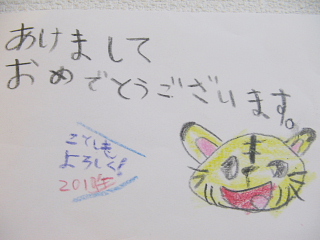 あけまして
おめでとうございます。
ことしも
よろしく!
2010年